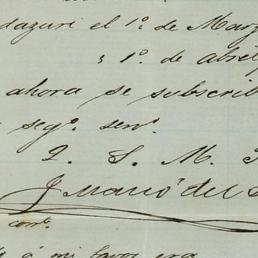 dazuri el 1º de Marz
1º. de abril
ahora se subscrib
segº. senº.
Q. S. M.
del
á mi favor era